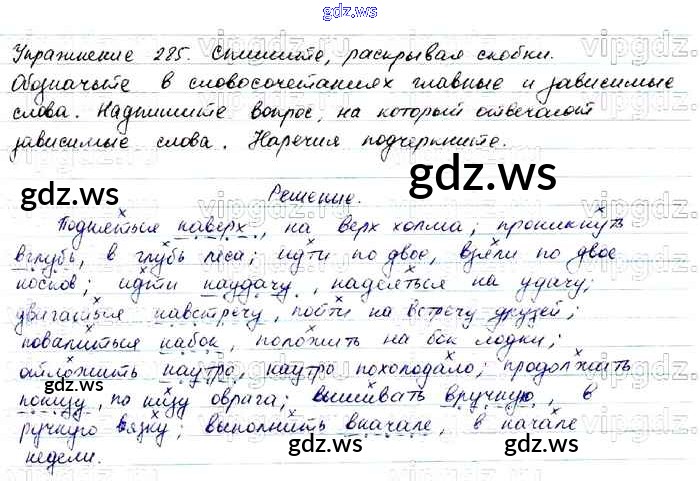 gdz.ws
Упражнение 285. Спишите, раскрывая скобки.
Обозначьте в словосочетаниях главные и зависимые
слова. Надпишите вопрос, на который отвечают
зависимые слова. Наречия подчеркните.
gdz.ws
gdz.ws
Решение.
Подняться наверх, на верх холма; проникнуть
вглубь, в глубь леса; идти по двое, взяли по двое
носков; идти наудачу, надеяться на удачу;
двигаться навстречу, пойти на встречу друзей;
повалиться набок, положить на бок лодки;
отложить наутро, наутро похолодало; продолжить
понизу, по низу оврага; вышивать вручную, в
ручную вязку; выполнить вначале, в начале
недели.
gdz.ws
gdz.ws
gdz.ws